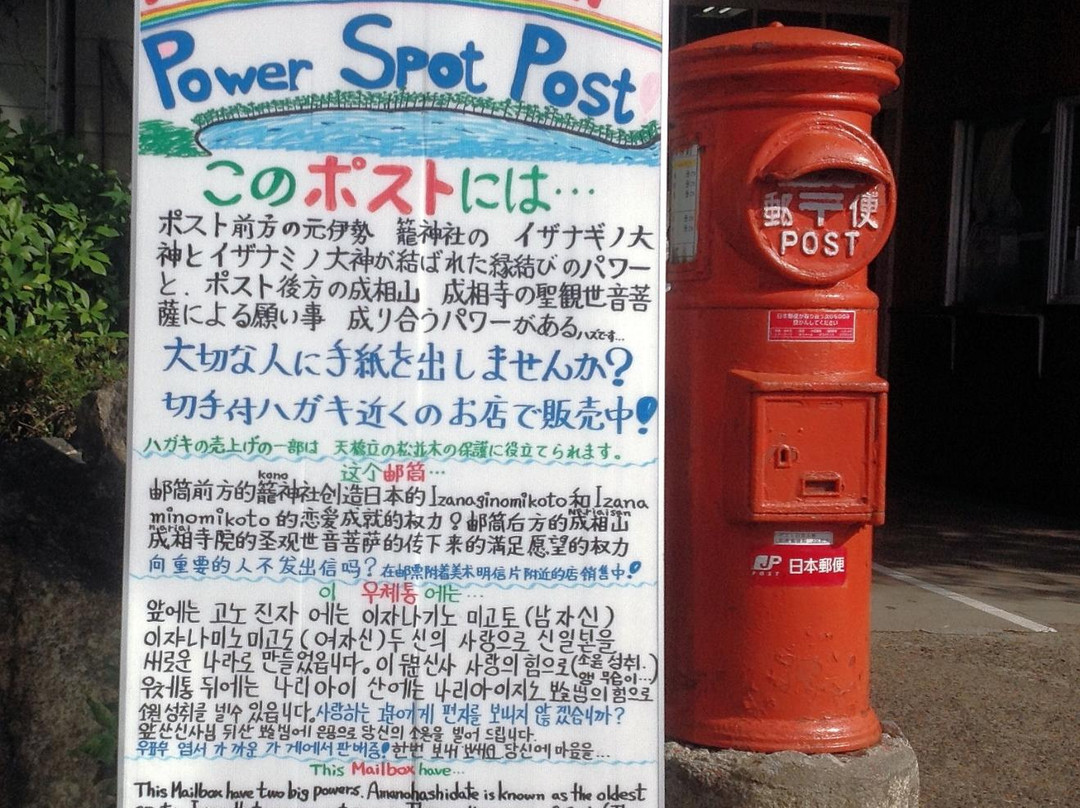 Power Spot Post
このポストには…
ポスト前方の元伊勢 籠神社の イザナギノ大
神とイザナミノ大神が結ばれた縁結びのパワー
と、ポスト後方の成相山 成相寺の聖観世音菩
薩による願い事 成り合うパワーがあるハズです…
大切な人に手紙を出しませんか?
切手付ハガキ近くのお店で販売中!
ハガキの売上げの一部は 天橋立の松並木の保護に役立てられます。
这个邮筒…
kono
邮筒前方的籠神社创造日本的Izanaginomikoto和Izana
minomikoto的恋爱成就的权力?邮筒后方的成相山
nariaisan
nariai
成相寺院的圣观世音菩萨的传下来的满足愿望的权力
向重要的人不发出信吗?在邮票附着美术明信片附近的店销售中!
이 우체통 에는…
앞에는 고노 진자 에는 이자나기노 미고토(남자신)
이자나미노미고도(여자신)두 신의 사랑으로 신일본을
새로운 나라로 만들었읍니다. 이 두분신사 사랑의 힘으로
우체통 뒤에는 나리아이 산에는 나리아이지노
있읍니다. 사랑하는 분에게 편지를 보내지 않겠습니까?
당신의 소원을 빌어 드립니다.
우표부 엽서 가까운 가게에서 판매중! 한번 보내 보세요 당신에 마음을…
This Mailbox have…
This Mailbox have two big powers. Amanohashidate is known as the oldest
郵〒便
POST
JP
POST
日本郵便